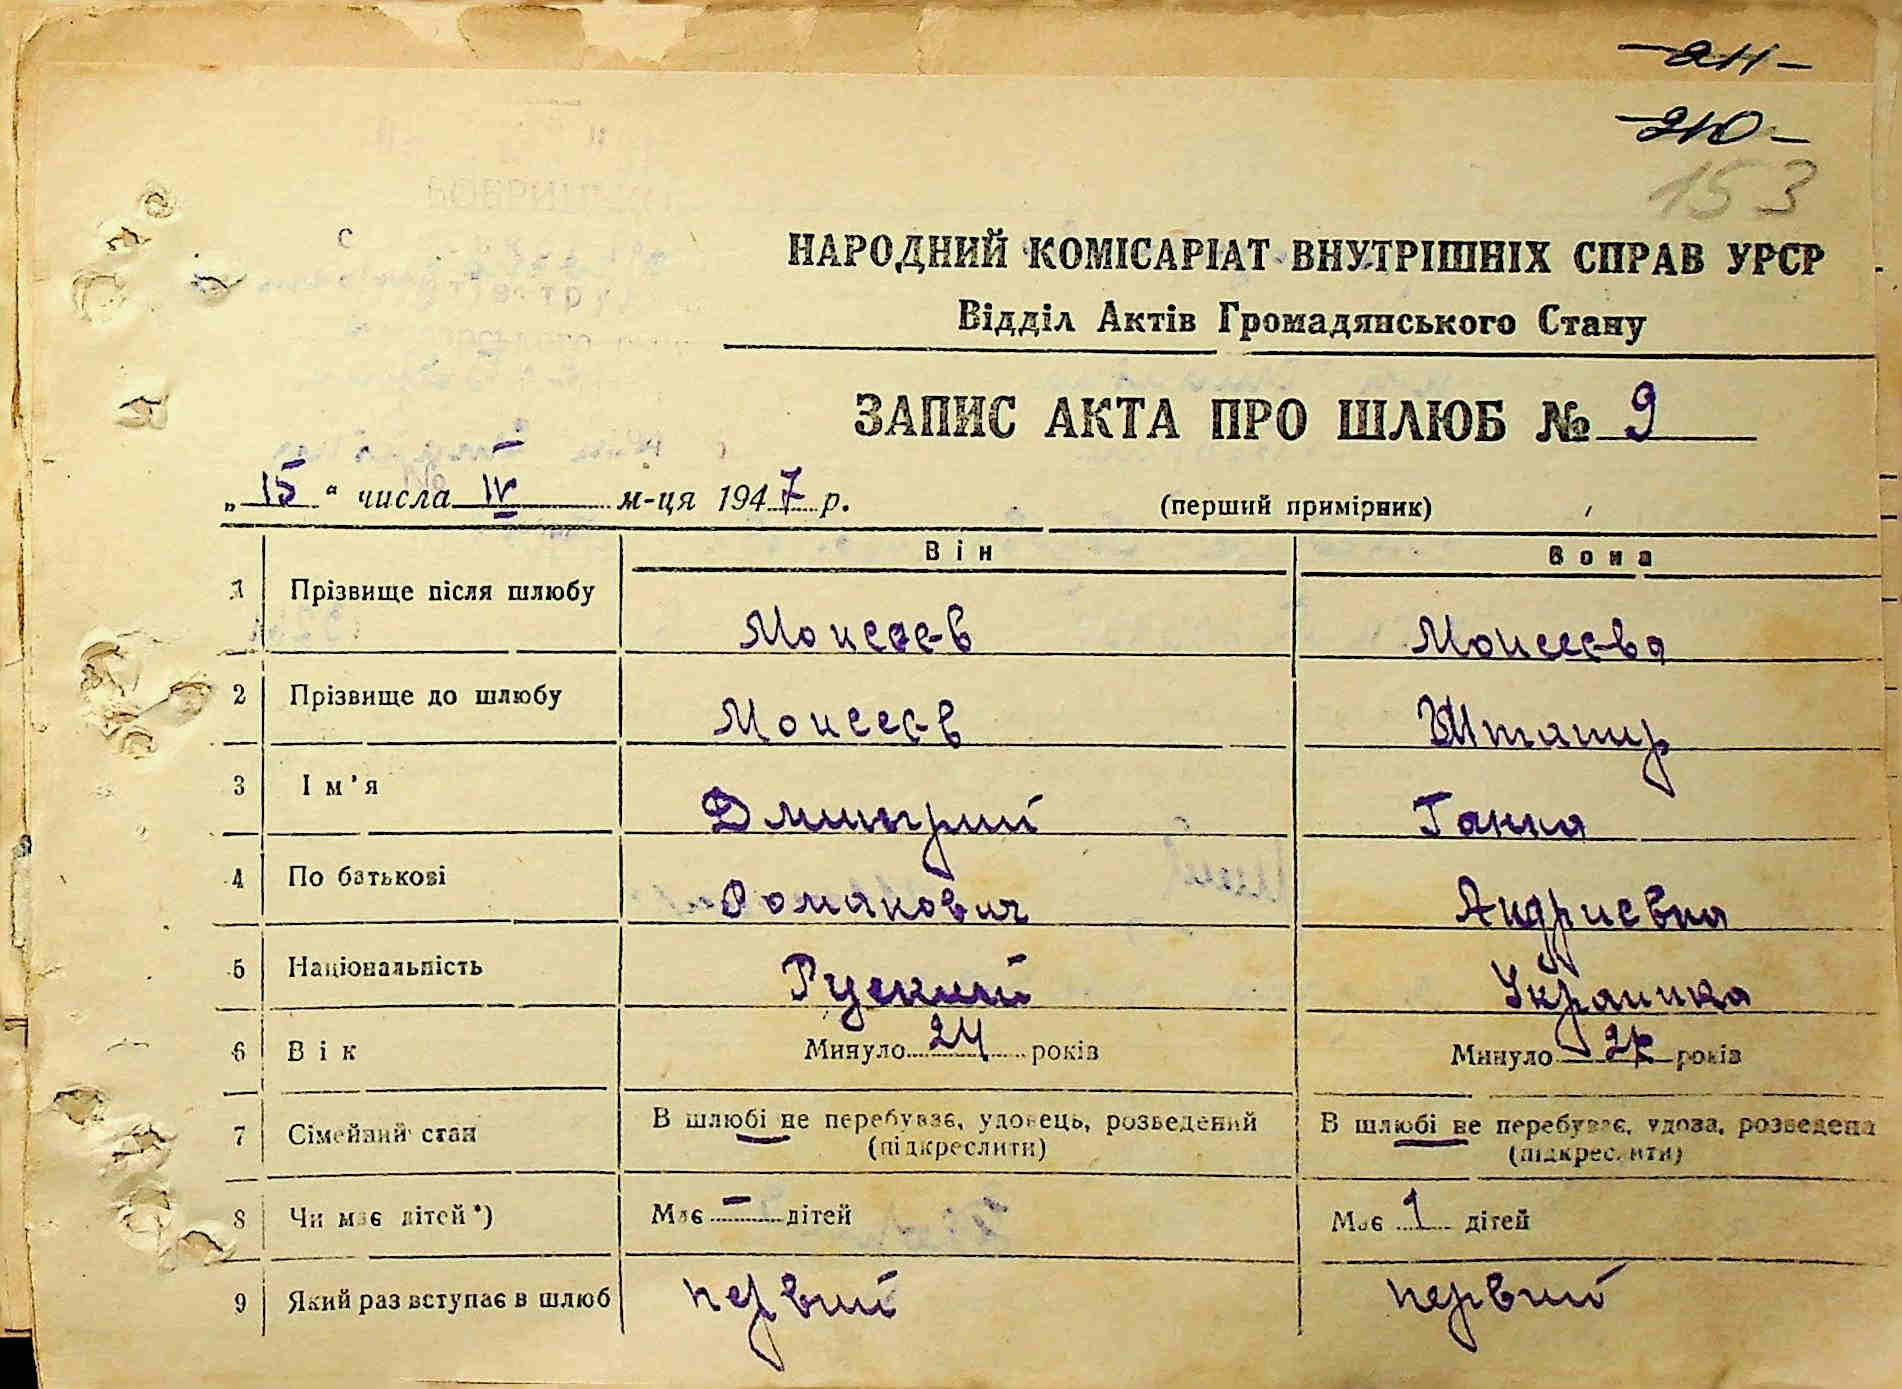 -211-
-210-
153
НАРОДНИЙ КОМІСАРІАТ ВНУТРІШНІХ СПРАВ УРСР
Відділ Актів Громадянського Стану
ЗАПИС АКТА ПРО ШЛЮБ № 9
„15“ числа IV м-ця 1947 р. (перший примірник)
Він Вона
1 Прізвище після шлюбу Моисеев Моисеева
2 Прізвище до шлюбу Моисеев Штапир
3 Ім'я Дмитрий Ганна
4 По батькові Романович Андриевна
5 Національність Руский Украинка
6 Вік Минуло 24 років Минуло років
7 Сімейний стан В шлюбі не перебуває, удовець, розведений В шлюбі не перебуває, удова, розведена
(підкреслити) (підкреслити)
8 Чи має дітей*) Має — дітей Має 1 дітей
9 Який раз вступає в шлюб первий первий